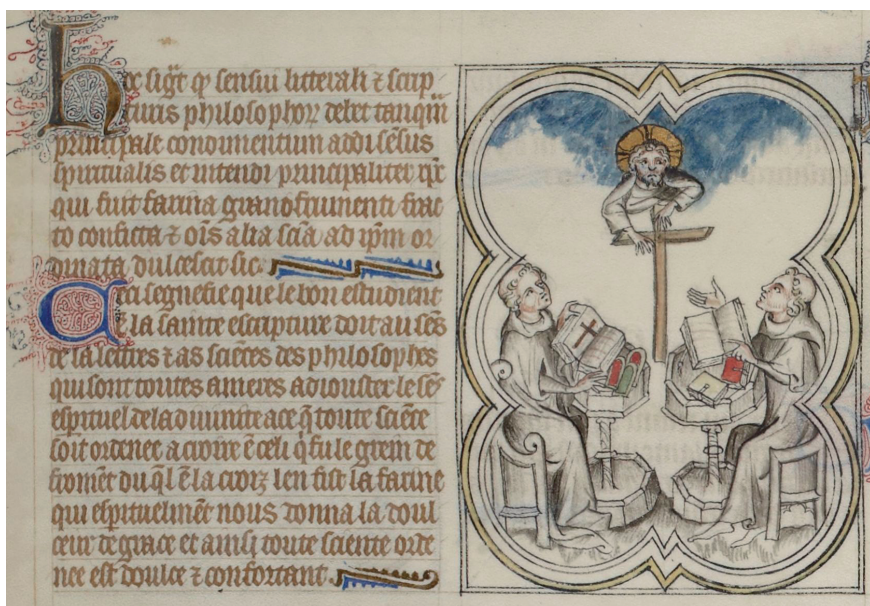 Hoc sigt̄ q̄ sensui litterali ⁊ scrip
turis philosophoꝝ debet tanqm̄
principale condimentum addi sēsus
spiritualis et intendi principaliter xp̄c
qui fuit farina grano frumenti frac
to conficta ⁊ oīs alia scīa ad ipm̄ or
dinata dulcescit sic.
Ceci segnefie que le bon estudient
ē la sainte escripture doit au sēs
de la lettres ⁊ as sciēces des philosophes
qui sont toutes ameres adiouster le sēs
espirituel de la diuinite a ce q̄ toute sciēce
soit ordenee a croire ē celi q̄ fu le grein de
fromēt du q̄l ē la croiz len fist la farine
qui espirituelmēt nous donna la doul
ceur de grace et ainsi toute science orde
nee est doulce ⁊ confortant.